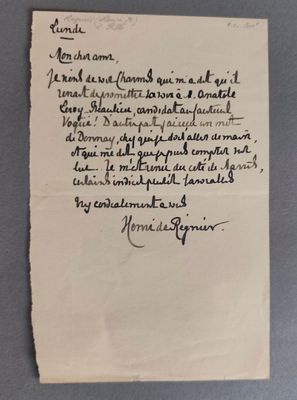 Lundi
Mon cher ami,
Je viens de voir Charmes qui m'a dit qu'il
venait de promettre sa voix à M. Anatole
Leroy Beaulieu, candidat au fauteuil
Vogüé! D'autre part j'ai reçu un mot
de Donnay, chez qui je dois aller demain,
et qui me dit que je puis compter sur
lui. Je m'étonne du côté de Barrès,
certains indices plutôt favorables
Bien cordialement à vous
Henri de Régnier.